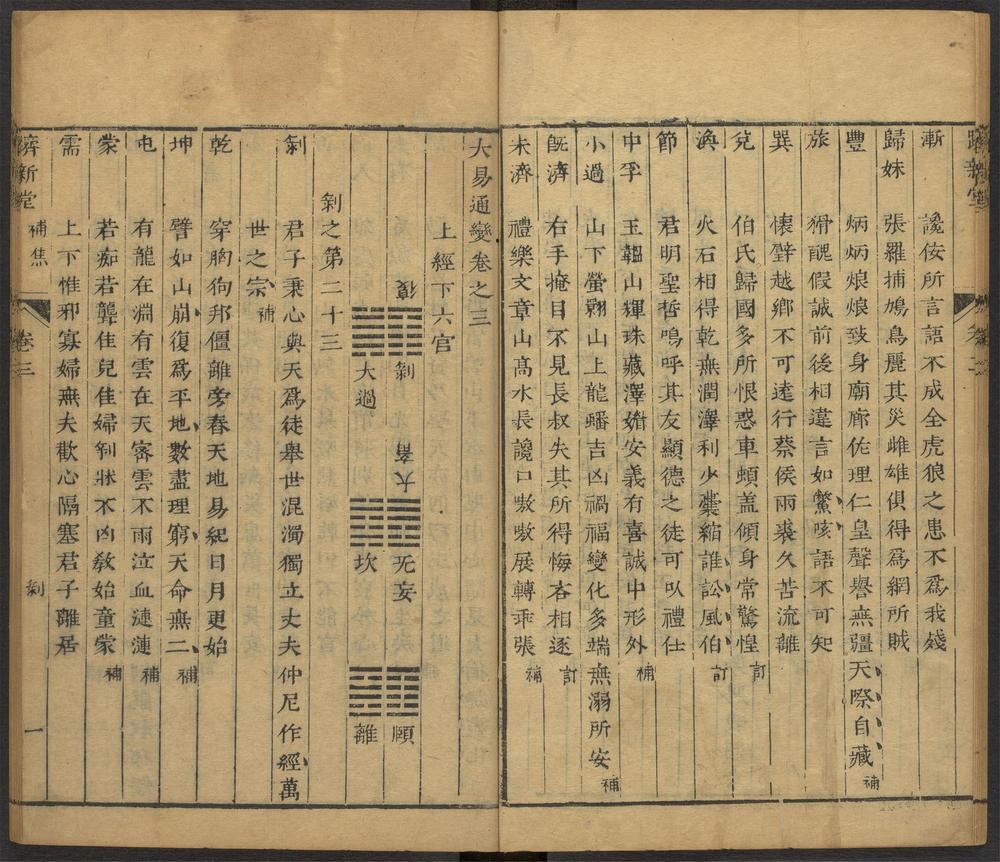 漸　讒佞所言語不成全虎狼之患不為我殘
歸妹　張羅捕鳩鳥麗其災雌雄俱得為網所賊
豐　炳炳烺烺致身廟廊佐理仁皇聲譽無疆天際自藏補
旅　猾醜假誠前後相違言如鱉咳語不可知
巽　懷璧越鄉不可遠行蔡侯兩裘久苦流離
兌　伯氏歸國多所恨惑車傾蓋傾身常驚惶訂
渙　火石相得乾無潤澤利少囊縮誰訟風伯訂
節　君明聖哲鳴呼其友顯德之徒可以禮仕
中孚　玉韞山輝珠藏澤媚安義有喜誠中形外補
小過　山下螢翾山上龍蟠吉凶禍福變化多端無溺所安補
既濟　右手掩目不見長叔失其所得悔吝相逐訂
未濟　禮樂文章山高水長讒口嗷嗷展轉乖張補
大易通變卷之三
上經下六官
復　剝　大畜　无妄　頤
大過　坎　離
剝之第二十三
剝　君子秉心與天為徒舉世混濁獨立丈夫仲尼作經萬
世之宗補
乾　穿胸狗邦僵離旁舂天地易紀日月更始
坤　譬如山崩復為平地數盡理窮天命無二補
屯　有龍在淵有雲在天密雲不雨泣血漣漣補
蒙　若痴若聾隹兒隹婦剝牀不凶教始童蒙補
需　上下惟邪寡婦無夫歡心隔塞君子離居
躋新堂　補焦　卷三　剝　一